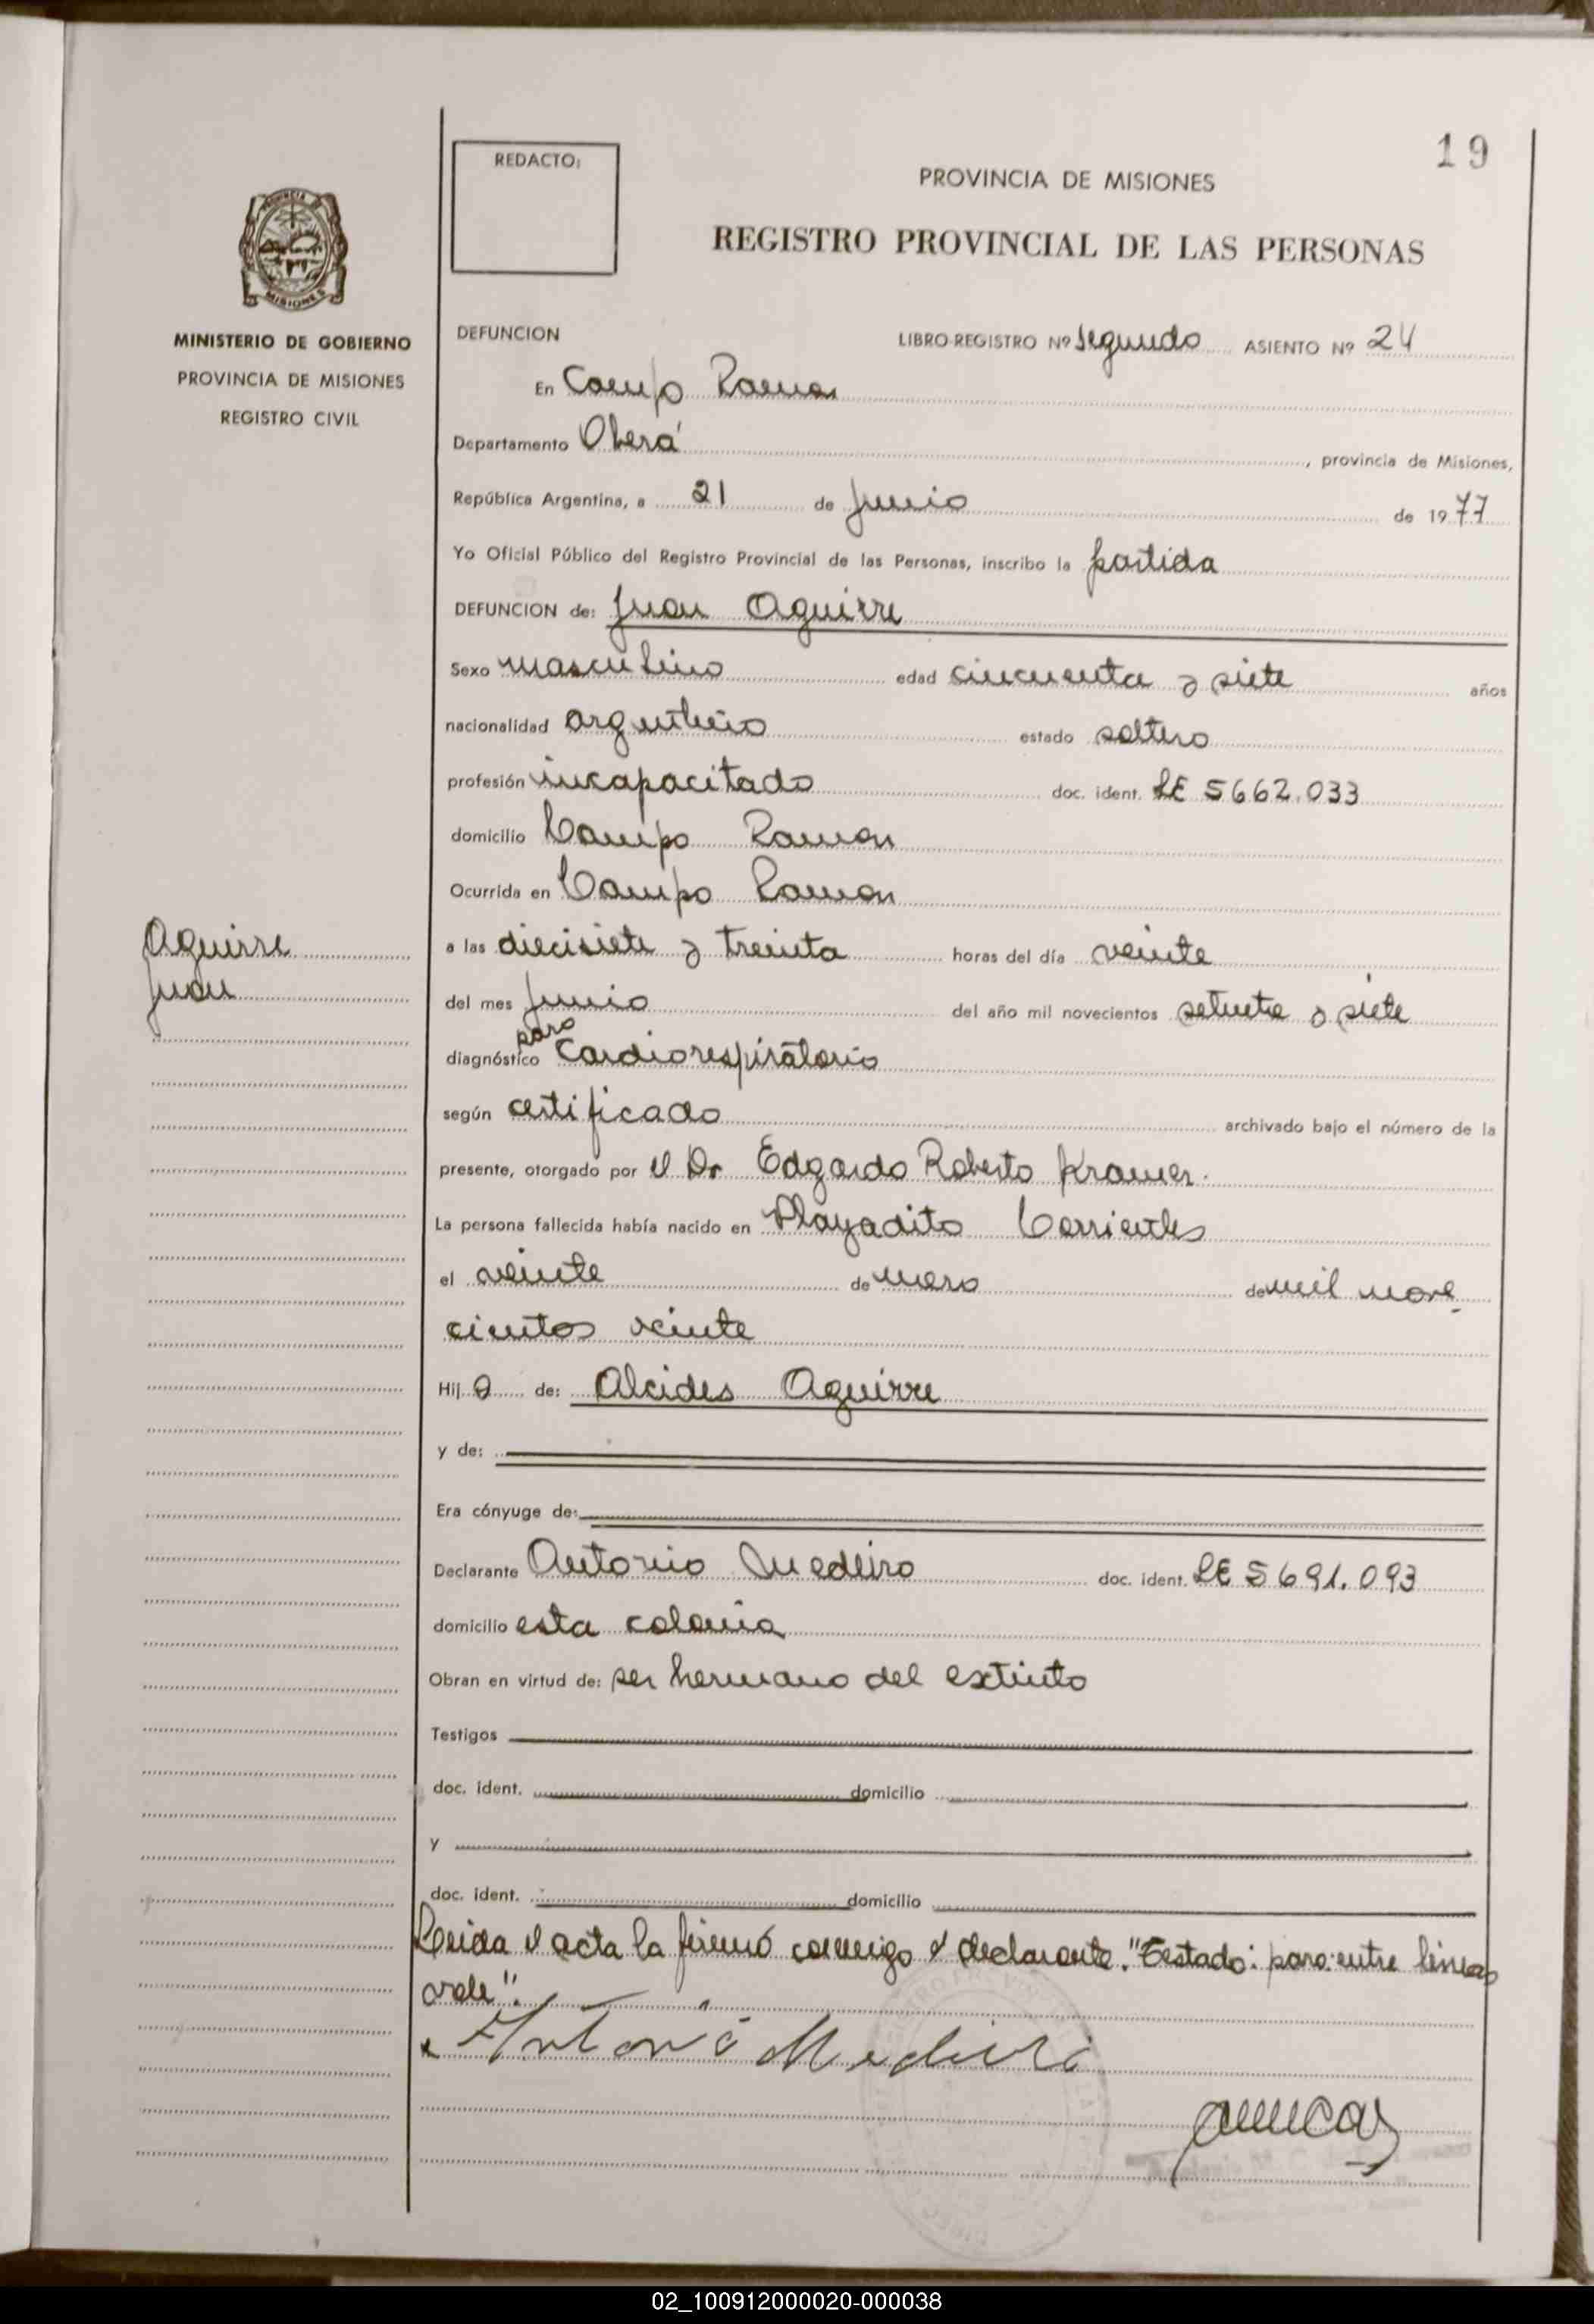 19
REDACTO:
PROVINCIA DE MISIONES
REGISTRO PROVINCIAL DE LAS PERSONAS
MISIONES
MINISTERIO DE GOBIERNO
PROVINCIA DE MISIONES
REGISTRO CIVIL
DEFUNCION LIBRO-REGISTRO Nº segundo ASIENTO Nº 24
En Campo Ramon
Departamento Oberá, provincia de Misiones,
República Argentina, a 21 de Junio de 1977
Yo Oficial Público del Registro Provincial de las Personas, inscribo la partida
DEFUNCION de: Juan Aguirre
Sexo masculino edad cincuenta y siete años
nacionalidad argentino estado soltero
profesión incapacitado doc. ident. LE 5662.033
domicilio Campo Ramon
Ocurrida en Campo Ramon
Aguirre
Juan
a las diecisiete y treinta horas del día veinte
del mes Junio del año mil novecientos setenta y siete
paro
diagnóstico Cardiorespiratorio
según certificado archivado bajo el número de la
presente, otorgado por el Dr Edgardo Roberto Kramer.
La persona fallecida había nacido en Playadito Corrientes
el veinte de de mil nove
cientos veinte
Hijo de: Alcides Aguirre
y de:
Era cónyuge de:
Declarante Antonio Medeiro doc. ident. LE 5691.093
domicilio esta colonia
Obran en virtud de: ser hermano del extinto
Testigos
doc. ident. domicilio
y
doc. ident. domicilio
Leida el acta la firmó conmigo el declarante. "Testado: paro: entre lineas
vale".
Antonio Medeiro
02_100912000020-000038